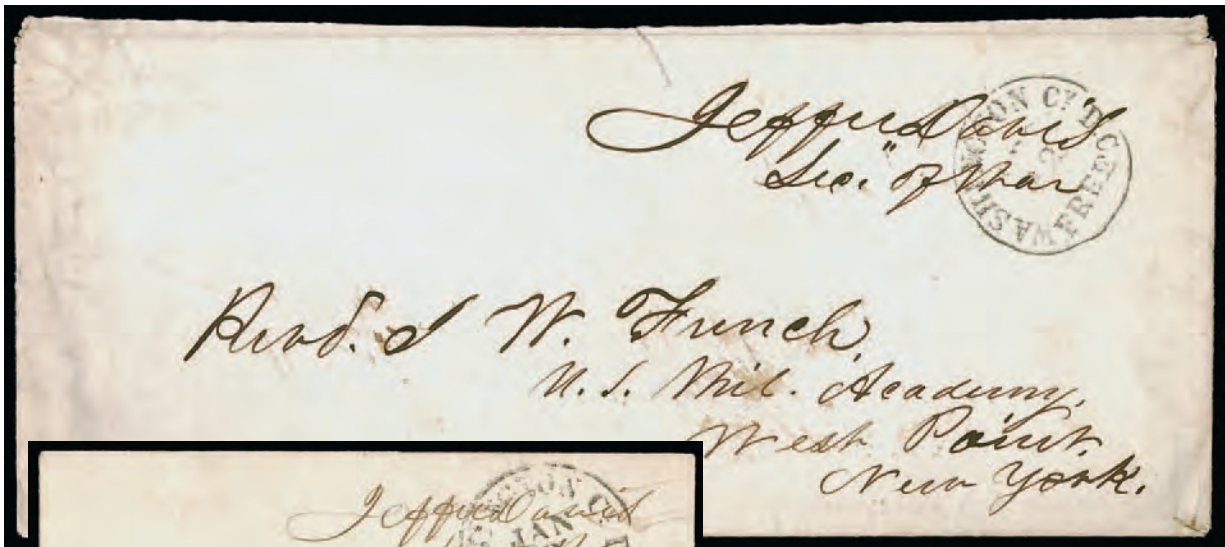 Jeffer Davis
Sec. of War
WASHINGTON CY. D.C.
FREE
Revd. J W. French,
U.S. Mil. Academy,
West Point,
New York.
Jeffer Davis
JAN